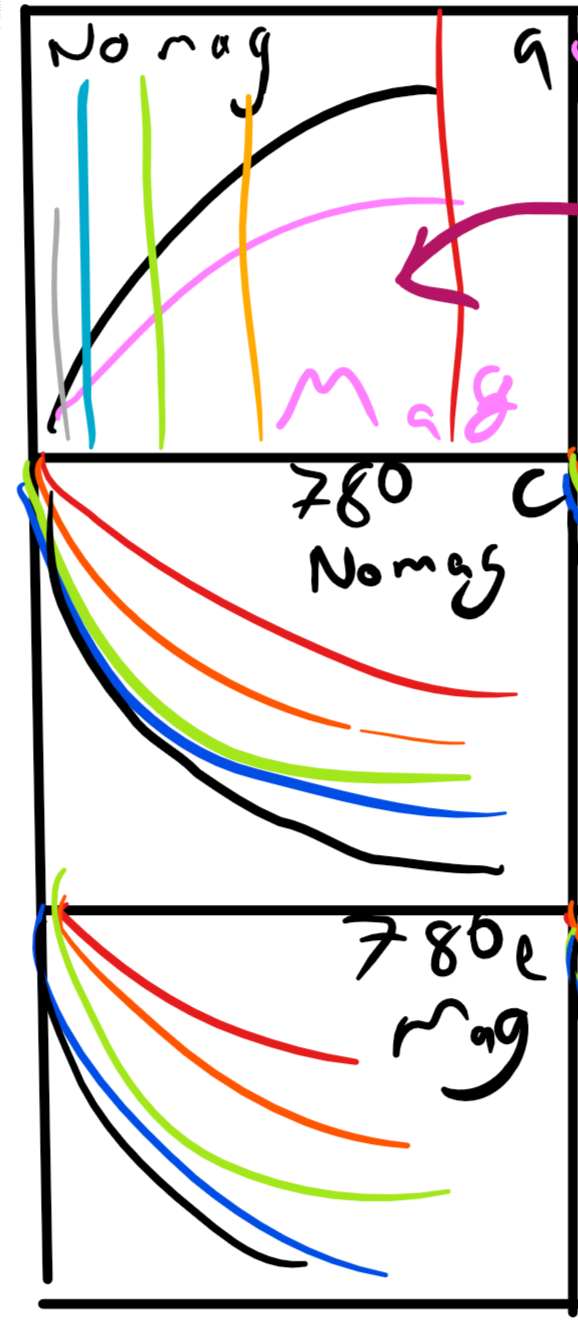 No mag a
Mag
780 C
No mag
780 e
Mag